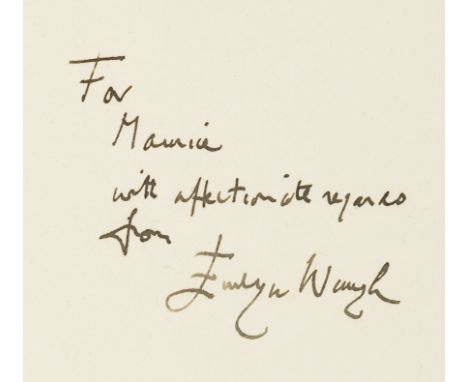 For
Maurice
with affectionate regards
from
Evelyn Waugh